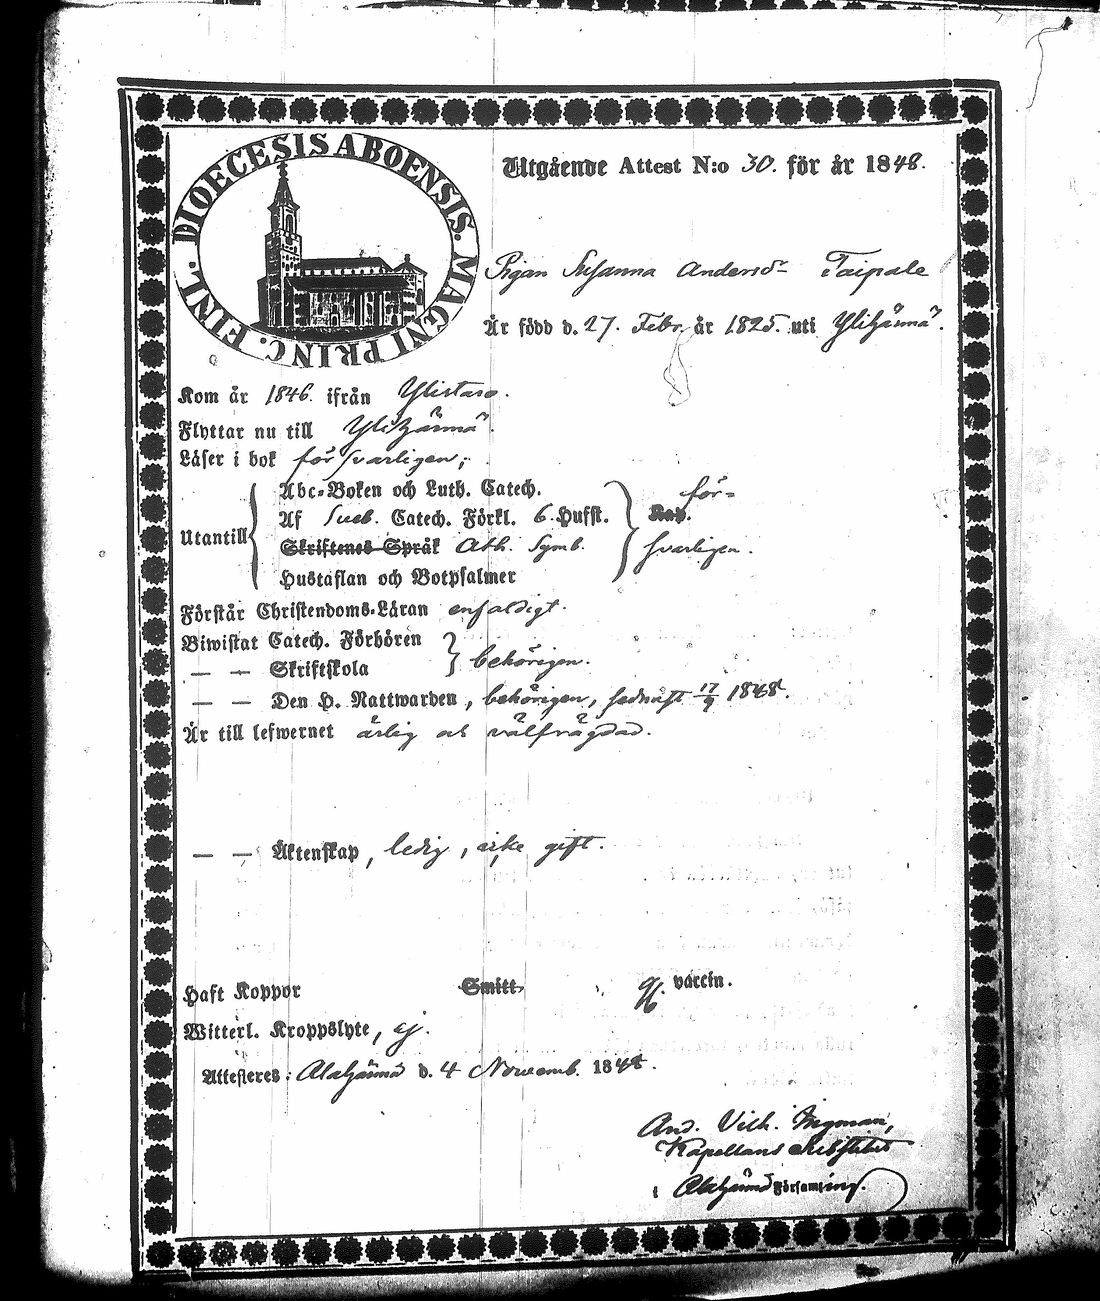 DIOECESIS ABOENSIS. MAGNI PRINC. FINL.
Utgående Attest N:o 30. för år 1848.
Pigan Susanna Andersdr Taipale
Är född d. 27. Febr. år 1825. uti Ylihärmä.
Kom år 1846. ifrån Ylistaro.
Flyttar nu till Ylihärmä.
Läser i bok försvarligen;
Abc-Boken och Luth. Catech.
Af Sveb. Catech. Förkl. 6 Hufst.
Utantill
Skriftenes Språk Ath. Symb.
Hustaflan och Botpsalmer
för-
svarligen.
Förstår Christendoms-Läran enfaldigt.
Biwistat Catech. Förhören
— — Skriftskola
behörigen.
— — Den H. Nattwarden, behörigen, sednast 17/9 1848.
Är till lefwernet ärlig och välfrägdad.
— — Äktenskap, ledig, icke gift.
Haft Koppor Smitt. vaccin.
Witterl. Kroppslyte, ej.
Attesteres: Alahärmä d. 4 Novemb. 1848.
And. Vilh. Ingman,
Kapellans Substitut
i Alahärmä Församling.